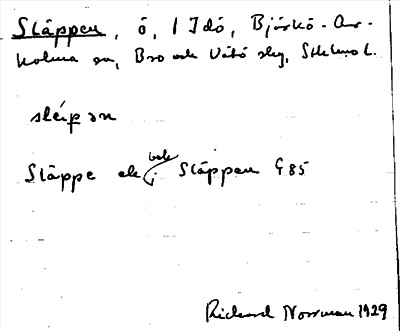 Släppen, ö, i Idö, Björkö-Ar-
holma sn, Bro och Vätö skg, Sthlms l.
släp̱ən
Släppe ek bek. Släppen G 85
Richard Norrman 1929